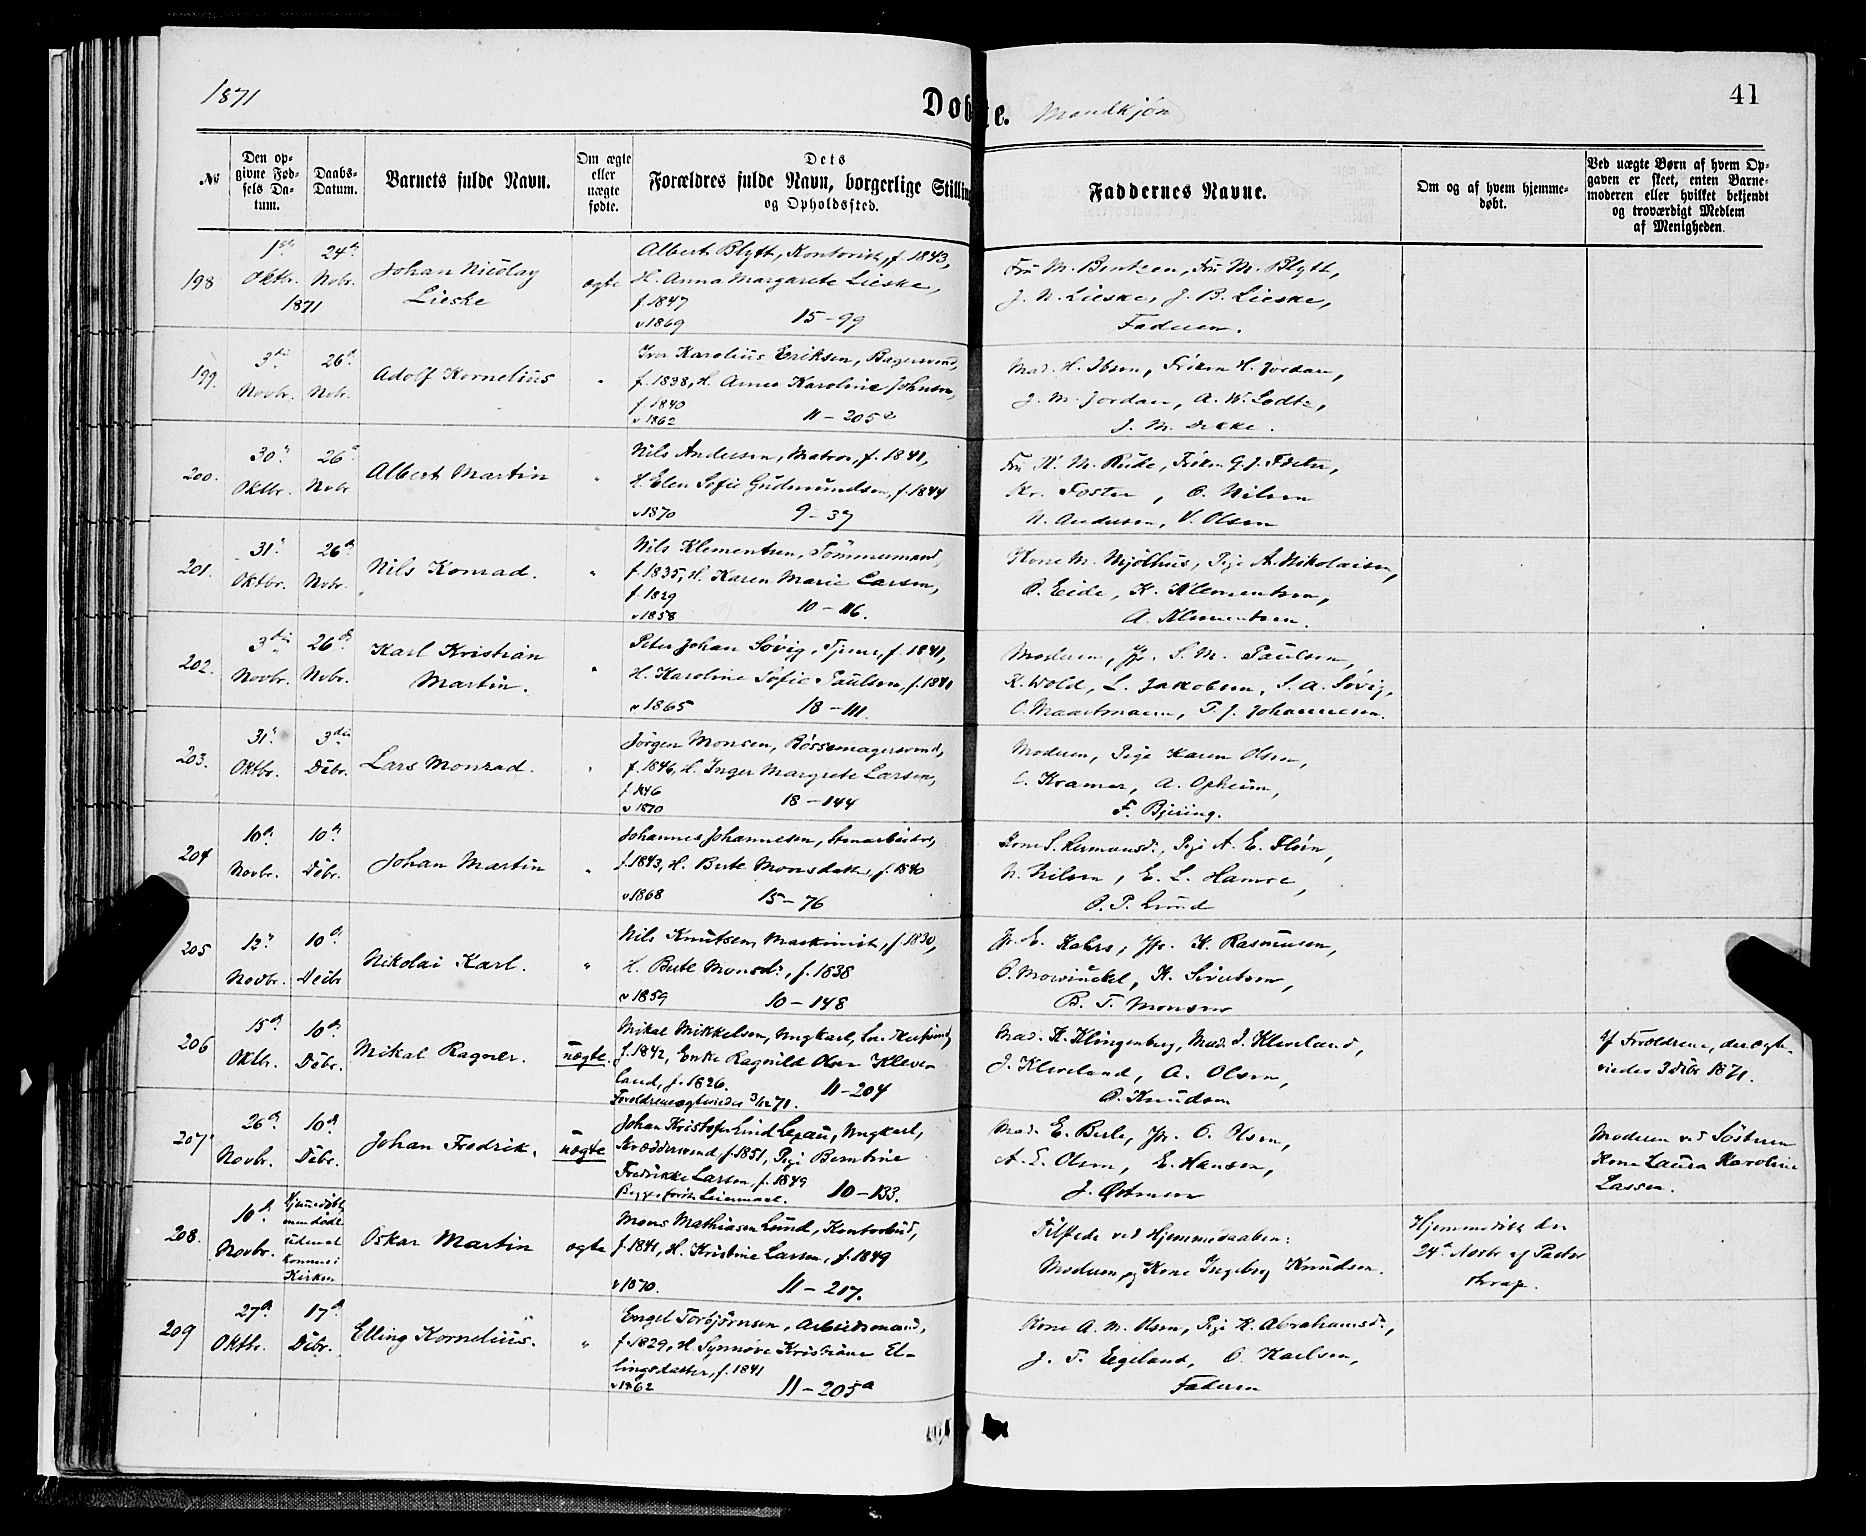 1871
Døbte. Mandkjøn
41
No
Den opgivne Fødsels Datum.
Daabs-Datum.
Barnets fulde Navn.
Om ægte eller uægte fødte.
Dets Forældres fulde Navn, borgerlige Stilling og Opholdssted.
Faddernes Navne.
Om og af hvem hjemmedøbt.
Ved uægte Børn af hvem Opgaven er skeet, enten Barnemoderen eller hvilket bekjendt og troværdigt Medlem af Menigheden.
198
1ste Oktbr. 1871
24de Novbr.
Johan Nicolay
Lieske
ægte
Albert Blytt, Kontorist, f. 1843,
H. Anna Margarete Lieske,
f. 1847
v 1869 15 - 99
Fru M. Bentzen, Fru M. Blytt,
J. N. Lieske, J. B. Lieske,
Faderen.
199.
3die Novbr.
26de Nobr.
Adolf Kornelius
"
Iver Karolius Eriksen, Bagersvend,
f. 1838, H. Anne Karoline Johnsen,
f. 1840
v 1862 11 - 205
Mad. H. Ibsen, Frøken H. Jordan,
J. M. Jordan, A. W. Lodtz,
J. M. Dekke.
200.
30te Oktbr.
26de Novbr
Albert Martin
"
Nils Andersen, Matros, f. 1841,
H. Elen Sofie Gudmundsen, f. 1844
v 1870 9 - 37
Fru K. M. Rude, Frøken G. J. Foster,
Kr. Foster, O. Nilsen
N. Andersen, V. Olsen
201.
31te Oktbr.
26de Nvbr.
Nils Konrad.
"
Nils Klementsen, Tømmermand,
f. 1835, H. Karen Marie Larsen,
f. 1829
v 1858 10 - 116.
Kone M. Mjølhus, Pige A. Nikolaisen,
O. Eide, K. Klementsen,
A. Klementsen.
202.
3die Novbr.
26de Nvbr.
Karl Kristian
Martin.
"
Peter Johan Søvig, Tjener, f. 1841,
H. Karoline Sofie Paulsen, f. 1841
v 1865 18 - 111.
Moderen, Jfr. S. M. Paulsen,
R. Wold, L. Jakobsen, S. A. Søvig,
C. Maartmann, T. J. Johannesen.
203.
31te Oktbr.
3die Dcbr.
Lars Monrad.
"
Jørgen Monsen, Bøssemagersvend,
f. 1846, H. Inger Margrete Larsen,
f. 1846
v 1870 18 - 144
Moderen, Pige Karen Olsen,
Kramer, A. Opheim,
F. Bjering.
204
10de Novbr.
10de Dcbr.
Johan Martin
"
Johannes Johannesen, Stenarbeider,
f. 1843, H. Berte Monsdatter, f. 1840
v 1868 15 - 76
Kone S. Hermansd., Pige A. E. Fløen,
N. Nilsen, E. L. Hamre,
O. P. Lund
205
12te Novbr.
10de Decbr
Nikolai Karl.
"
Nils Knutsen, Maskinist, f. 1830,
H. Berte Monsd., f. 1838
v 1859 10 - 148
Jfr. E. Kahrs, Jfr. K. Rasmussen,
O. Mowinckel, K. Sivertsen,
B. T. Monsen
206
15de Oktbr.
10de Dcbr.
Mikal Ragner.
uægte.
Mikal Mikkelsen, Ungkarl,
f. 1842, Enke Ragnild Olsen Kleveland, f. 1826. 11 - 204
Forældrene ægteviedes 3/12 71.
Mad. K. Klingenberg, Mad. I. Kleveland,
J. Kleveland, A. Olsen,
O. Knudsen
Af Forældrene, der ægteviedes 3 Dcbr 1871.
207
26de Novbr.
10de Dcbr.
Johan Fredrik.
uægte
Johan Kristofer Lind Lexau, Ungkarl,
Skræddersvend, f. 1851, Pige Berntine
Fredrikke Larsen, f. 1849
Begges første Leiermaal. 10 - 133.
Mad. E. Berle, Jfr. O. Olsen,
A. E. Olsen, E. Hansen,
J. Østmoen
Moderen ved Søsteren
Kone Laura Karoline
Lassen.
208.
10de Novbr.
Hjemmedøbt, men døde uden at komme i Kirken
Oskar Martin
ægte
Mons Mathiasen Lund, Kontorbud,
f. 1841, H. Kristine Larsen, f. 1849
v 1870. 11 - 217.
Tilstede ved Hjemmedaaben:
Moderen og Kone Ingeborg Knudsen.
Hjemmedøbt den
24de Novbr af Pastor
Krag.
209
27de Oktbr.
17de Dcbr.
Elling Kornelius.
"
Engel Torbjørnsen, Arbeidsmand,
f. 1829, H. Synnøve Kristiane Ellingsdatter, f. 1841
v 1862 11 - 205a
Kone A. M. Olsen, Pige K. Abrahamsd.,
J. T. Egeland, O. Karlsen,
Faderen